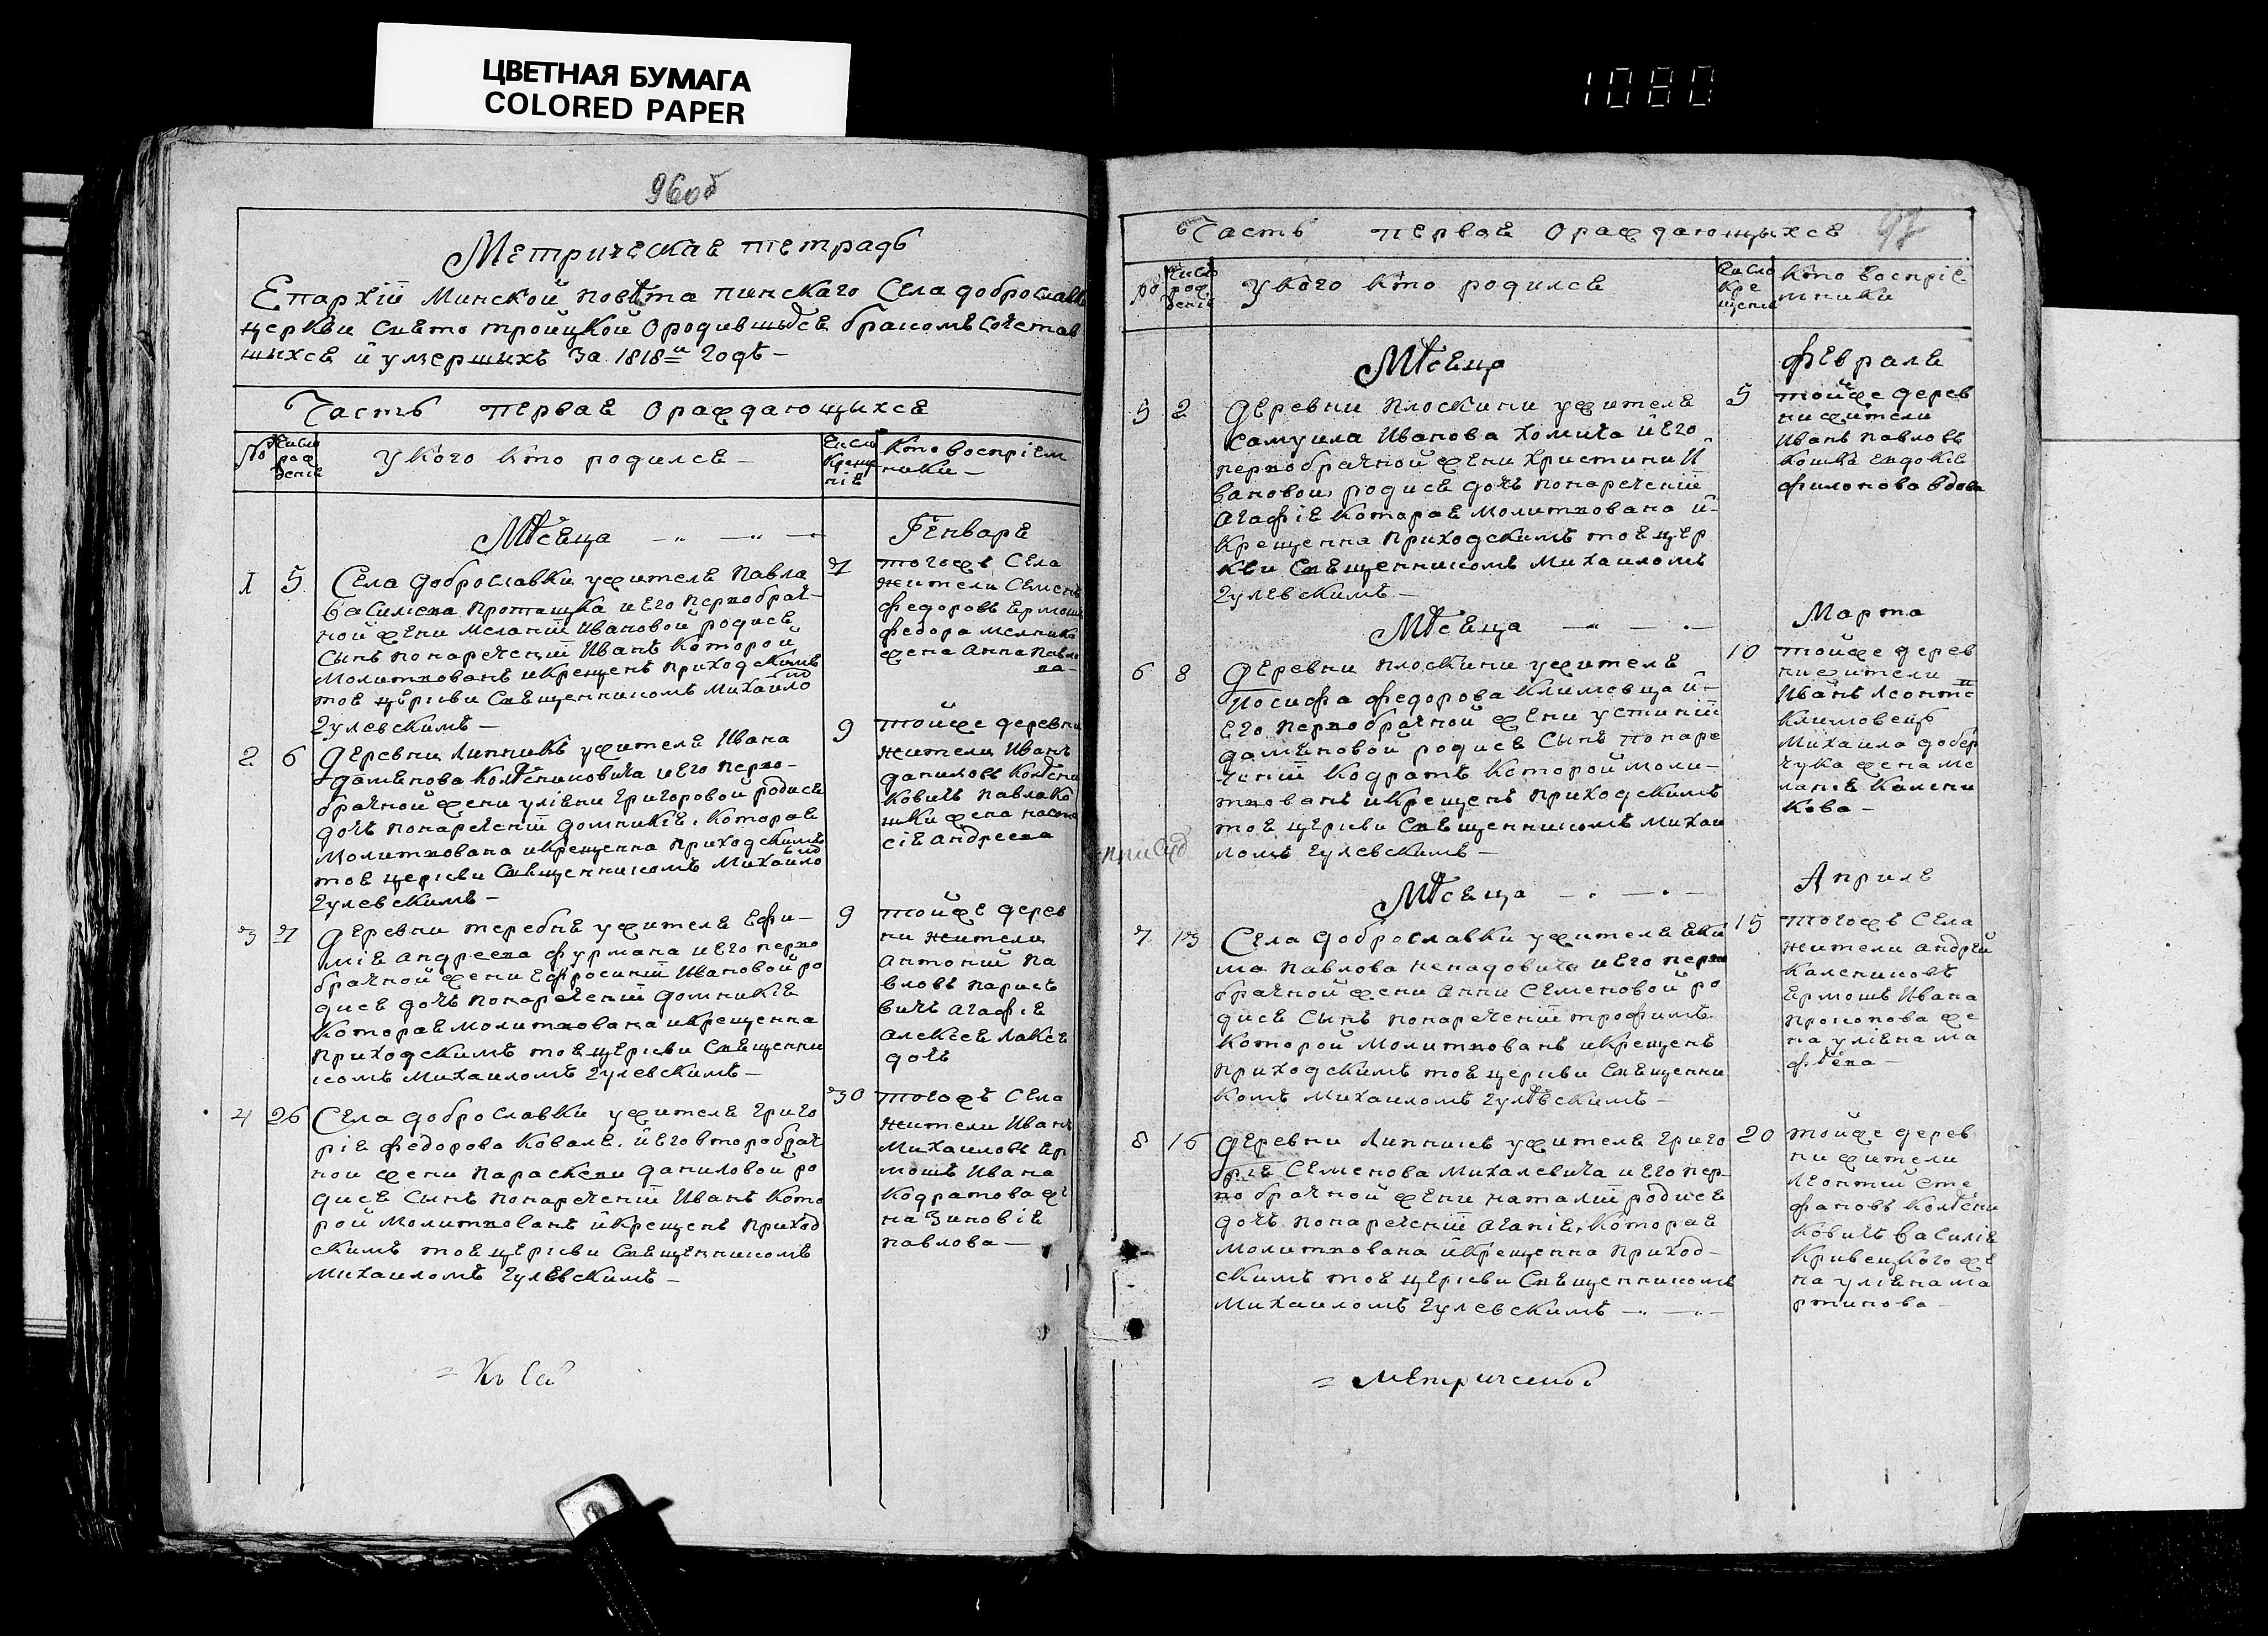 ЦВЕТНАЯ БУМАГА
COLORED PAPER
1080
96об
Метрическая тетрадь
Епархіи Минской повѣта пинскаго Села доброславки
церкви свято тройцкой о родившыхся бракомъ сочетав
шыхся и умершыхъ За 1818й Годъ —
Часть первая о раждающыхся
№
Число рож денія
У кого кто родился —
Число Креще нія
Кто воспріем ники —
Мѣсеца
Генваря
1
5
Села доброславки у жителя Павла
Василіева Проташка и Его первобрач-
ной жены Меланіи Ивановой родися
Сынъ нонареченій Иванъ Которой
Молитвованъ и Крещенъ Приходскимъ
тоя церкви Священникомъ Михайло
Гулевскимъ —
7
тогожъ Села
жители Семенъ
Федоровъ Ермошъ
Федора Мелника
жена Анна Павло
ва —
2
6
Деревни Липникъ у жителя Ивана
даменова Колѣнниковича и Его перво-
брачной жены уліяни Григоровой родися
дочъ нонареченій домникія. Которая
Молитвована и Крещенна Приходскимъ
тоя церкви Священникомъ Михайло
Гулевскимъ —
9
тойже деревни
жители Иванъ
даниловъ Колѣни
Ковичъ Павла Ко
шки жена наста
сія андреева
3
7
Деревни теребня у жителя Ефи-
мія андреева фурмана и Его перво
брачной жени Ефросиніи Ивановой ро
дися дочъ нонареченій домникія
Которая Молитвована и Крещенна
Приходскимъ тоя церкви Священни
комъ Михаиломъ Гулевскимъ —
9
тойже дерев
ни жители
антоній Па
вловъ парие
вичъ агафія
алексея лакся
дочъ
4
26
Села доброславки у жителя Григо
рія федорова Коваля. и Его второбрач
ной жени Параскеви даниловой ро
дися Сынъ нонареченій Иванъ Кото
рой Молитвованъ и Крещенъ Приход
скимъ тоя церкви Священникомъ
Михаиломъ Гулевскимъ —
30
тогожъ Села
жители Иванъ
Михаиловъ Ер
мошъ Ивана
Кодратова же
на Зиновія
павлова —
97
Часть первая о раждающыхся
№
Число рож денія
У кого кто родился
Число Кре щенія
Кто воспріе мники
Мѣсеца
Февраля
5
2
Деревни Плоскини у жителя
Самуила Иванова Хомича и Его
первобрачной жени Христини И
вановои, родися дочъ нонареченій
агафія Которая Молитвована и
Крещенна Приходскимъ тоя цер
кви Священникомъ Михаиломъ
Гулевскимъ —
5
тойже дерев
ни жители
Иванъ Павловъ
Кошка Евдокія
филонова вдова
Мѣсеца
Марта
6
8
Деревни Плоскини у жителя
Иосифа федорова Климовца и
Его Первобрачной жени устиніи
даменовой родися Сынъ нонаре
ченій Кодратъ Которой моли-
твованъ и Крещенъ Приходскимъ
тоя церкви Священникомъ Михаи
ломъ Гулевскимъ —
10
тойже дерев
ни жители
Иванъ Леонте
Климовецъ
Михаила добер
чука жена ме
ланія Калени
Кова —
Мѣсеца
Априля
7
13
Села доброславки у жителя Еки
ма Павлова ненадовича и Его перво
брачной жени анни Семеновой ро
дися Сынъ нонареченій трофимъ.
Которой Молитвованъ и Крещенъ
Приходскимъ тоя церкви Священни
комъ Михаиломъ Гулѣвскимъ —
15
тогожъ Села
жители андрей
Калениковъ
Ермошъ Ивана
Прокопова же
на уліяна ма
фѣева —
8
16
Деревни Липникъ у жителя Григо
рія Семенова Михалевича и Его пер
во брачной жени наталіи родися
дочъ нонареченій агапія, Которая
Молитвована и Крещенна Приход-
скимъ тоя церкви Священникомъ
Михаиломъ Гулевскимъ —
20
тойже дерев
ни жители
Леонтій Сте
фановъ Колѣни
Ковичъ василія
Кривецкого же
на уліяна ма
ртинова —
= Къ сей
= Метрической